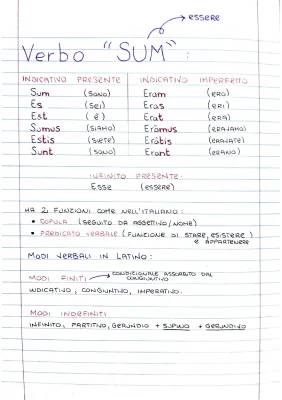 essere
Verbo "SUM" :
INDICATIVO PRESENTE INDICATIVO IMPERFETTO
Sum (SONO) Eram (ERO)
Es (SEI) Eras (ERI)
Est (È) Erat (ERA)
Sumus (SIAMO) Eràmus (ERAVAMO)
Estis (SIETE) Eràtis (ERAVATE)
Sunt (SONO) Erant (ERANO)
INFINITO PRESENTE
Esse (ESSERE)
HA 2 FUNZIONI COME NELL'ITALIANO:
• COPULA (SEGUITO DA AGGETTIVO/NOME)
• PREDICATO VERBALE (FUNZIONE DI STARE, ESISTERE
E APPARTENERE)
MODI VERBALI IN LATINO:
MODI FINITI → CONDIZIONALE ASSORBITO DAL
CONGIUNTIVO
INDICATIVO, CONGIUNTIVO, IMPERATIVO.
MODI INDEFINITI
INFINITO, PARTITIVO, GERUNDIO + SUPINO + GERUNDIVO